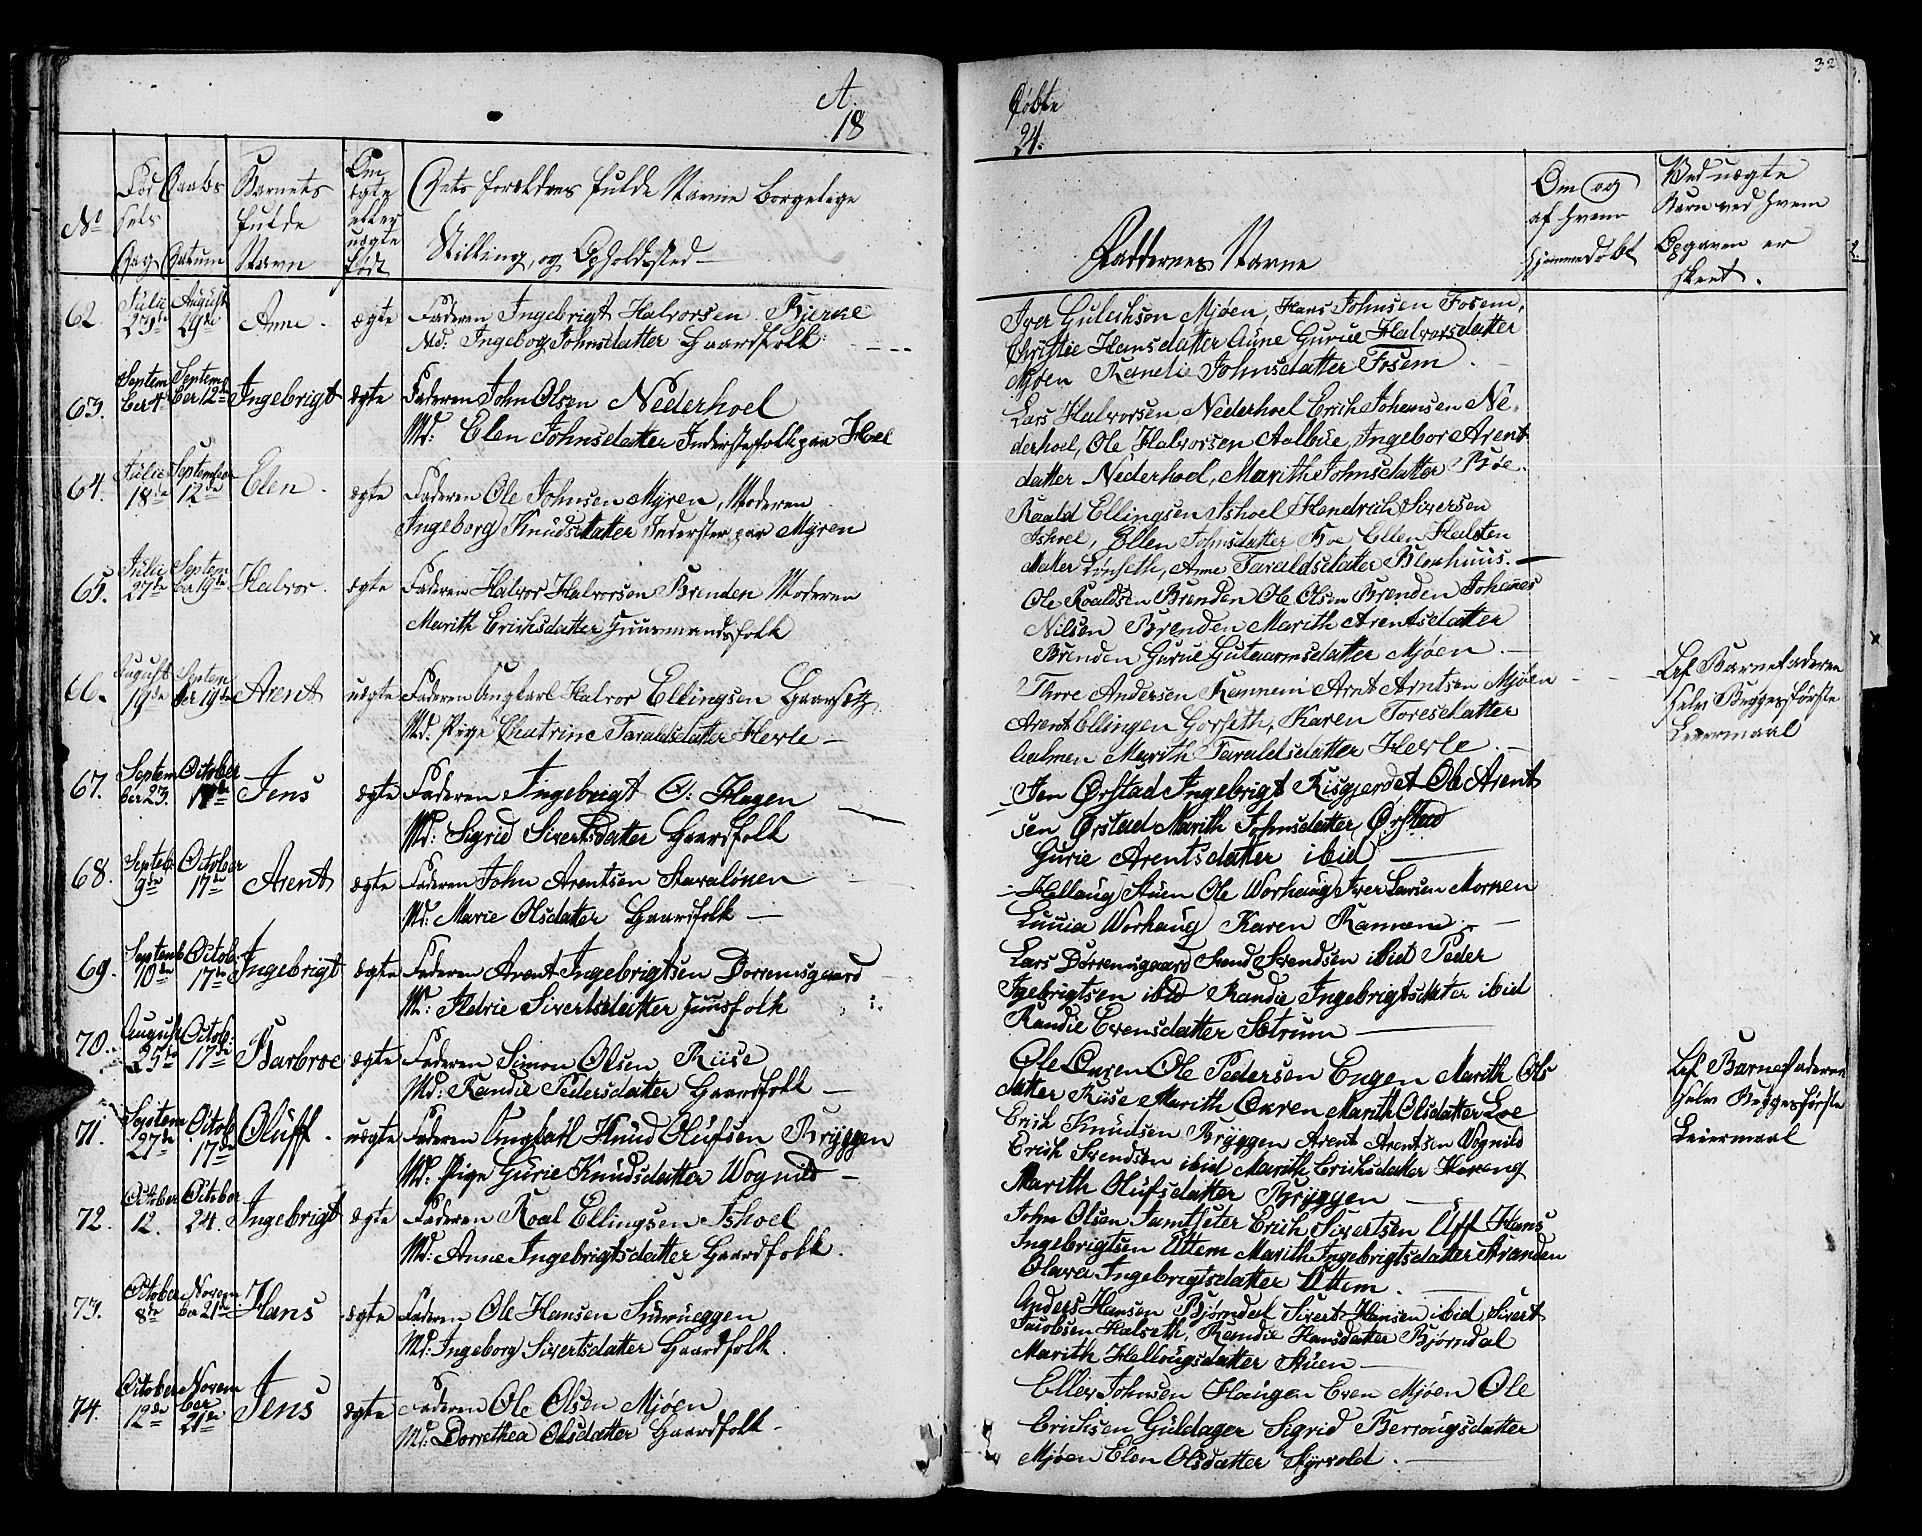 A. Døbte
18 24.
32
No
Fødsels Dag
Daabs Datum
Barnets fulde Navn
Om ægte eller uægte født
Dets Forældres fulde Navne borgelige
Stilling, og Opholdssted
Faddernes Navne
Om og af hvem hjemmedøbt
Ved uægte Barn ved hvem Opgaven er skeet.
62. Julii 29de August 29de Anne. ægte Faderen Ingebrigt Halvorsen Bjerke
Md. Ingebog Johnsdatter Gaardfolk
Iver Gulichsen Mjøen, Hans Johnsen Fosem,
Christie Hansdatter Aune Gurue Halvorsdatter
Mjøen Randie Johnsdatter Fosem
63. September 4. September 12de Ingebrigt ægte Faderen John Olsen Nederhoel
Md: Elen Johnsdatter Inderstefolk paa Hoel
Lars Halvorsen Nederhoel Erich Johansen Ne-
derhoel, Ole Halvorsen Aalbue, Ingebor Arent
datter Nederhoel, Marith Johnsdatter Bøe.
64. Julii 18de September 12de Elen. ægte Faderen Ole Johnsen Myren, Moderen
Ingeborg Knudsdatter Inderster paa Myren
Roald Ellingsen Ishoel Hendrich Siversen
Ishoel, Ellen Johnsdatter Boe Ellen Halsten
datter Lønseth, Anne Taraldsdatter Blæxhuus.
65. Julii 27de September 19de Halvor. ægte Faderen Halvor Halvorsen Brenden Moderen
Marith Erichsdatter Huusmandsfolk
Ole Roaldsen Brenden Ole Olsen Brenden Johanes
Nilsen Brenden Marith Arentsdatter
Brenden Gurue Gutuarmsdatter Mjøen
66. August 19de September 19de Arent uægte Faderen Ungkarl Halvor Ellingsen Gaarsetz
Md. Pige Chatrine Taraldsdatter Herle
Thore Andersen Rennem Arnt Arntsen Mjøen
Arent Ellingen Gorseth, Karen Toresdatter
Aalmen Marith Taraldsdatter Herle
Lif Barnefaderen
selv Begges første
Leiermaal
67. September 23. October 17de Jens ægte Faderen Ingebrigt O: Hagen
Md: Sigrid Sivertsdatter Gaardfolk
Jen Ørstad Ingebrigt Risgjerdet Ole Arent
sen Ørstad Marith Johnsdatter Ørstad
Gurie Arentsdatter ibid
68. Septeb. 9de October 17de Arent ægte Faderen John Arentsen Stavaløken
Md: Marie Olsdatter Gaardfolk
Hellaug Stuen Ole Worhaug Iver Larsen Morken
Lucia Worhaug Karen Ramem
69. Septemb 10de Octob. 17de Ingebrigt ægte Faderen Arent Ingebrigtsen Dorremsgaard
Md: Hedvie Sivertsdatter Huusfolk
Lars Dørremsgaard Svend Svendsen ibid Peder
Igebrigtsen ibid Randie Ingebrigtsdatter ibid
Randie Evensdatter Sætrum
70. August 25de Octob: 17de Barbroe ægte Faderen Simon Olsen Riise
Md: Randie Pedersdatter Gaardfolk
Ole Engen Ole Pedersen Engen Marith Ols
datter Riise Marith Engen Marith Olsdatter Loe
71. September 27de Octob. 17de Oluff. uægte Faderen Ungkarl Knud Olufsen Bryggen
Md: Pige Gurie Knudsdatter Wognild
Erich Knudsen Bryggen Arent Arentsen Wognild
Erich Svendsen ibid Marith Erichsdatter Horeng
Marith Olufsdatter Bryggen
Lif Barnefaderen
selv Begges første
Leiermaal
72. October 12. October 24. Ingebrigt ægte Faderen Roal Ellingsen Ishoel
Md: Anne Ingebrigtsdatter Gaardfolk.
John Olsen Jamtseter Erich Sivertsen Uff Hans
Ingebrigtsen Uttem Marith Ingebrigtsdatter Stranden
Olava Ingebrigtsdatter Uttem.
73. October 8de November 21de Hans ægte Faderen Ole Hansen Snurueggen
Md: Ingeborg Sivertsdatter Gaardfolk.
Anders Hansen Bjørndal Sivert Hansen ibid Sivert
Jacobsen Halseth, Randie Hansdatter Bjørndal
Marith Hellougsdatter Stuen
74. October 12de November 21de Jens ægte Faderen Ole Olsen Mjøen
Md: Dorrethea Olsdatter Gaardfolk
Ellev Johnsen Haugen Even Mjøen Ole
Erichsen Guldager Sigrid Berrougsdatter
Mjøen Elen Olsdatter Styrvold.